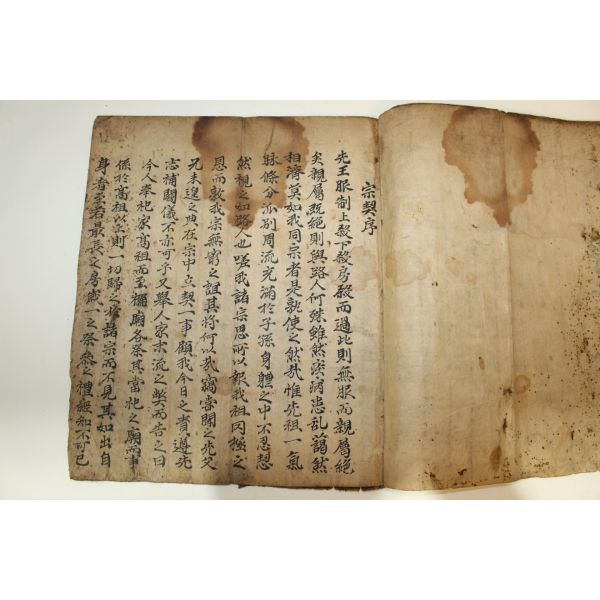 宗契序
先王服制上殺下殺旁殺而過此則無服而親屬絕
矣親屬旣絕則與路人何殊雖然疾病患乱藹然
相濟莫如我同宗者是孰使之然哉惟先祖一氣
脉條分派別周流充滿於子孫身軆之中不忍恝
然視之如路人也嗟我諸宗思所以報我祖罔極之
恩而敦我宗無窮之誼其將何以哉竊嘗聞之先父
兄未遑之典在宗中立契一事顧我今日之責遵先
志補闕儀不亦可乎又擧人家末流之弊而告之曰
今人奉祀家高祖而至禰廟各祭其當祀之廟而事
係於高祖以上則一切歸之諸宗而不見其如出自
身者至若最長之房歲一之祭參之禮無知不可已